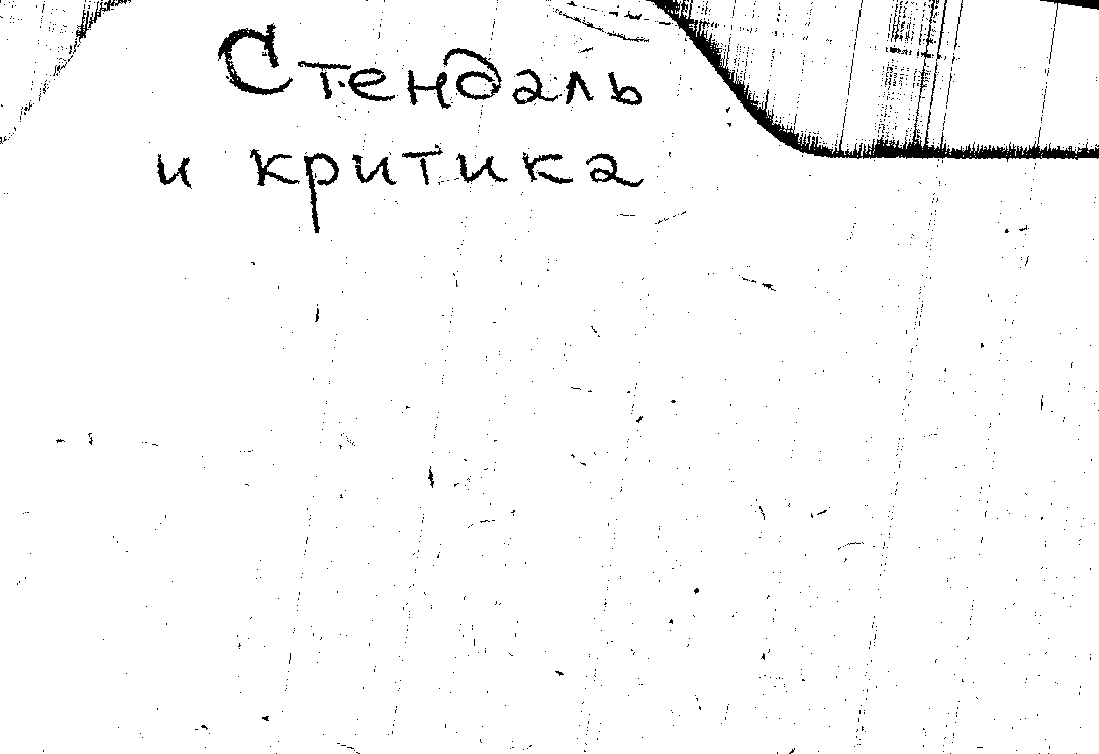 Стендаль
и критика